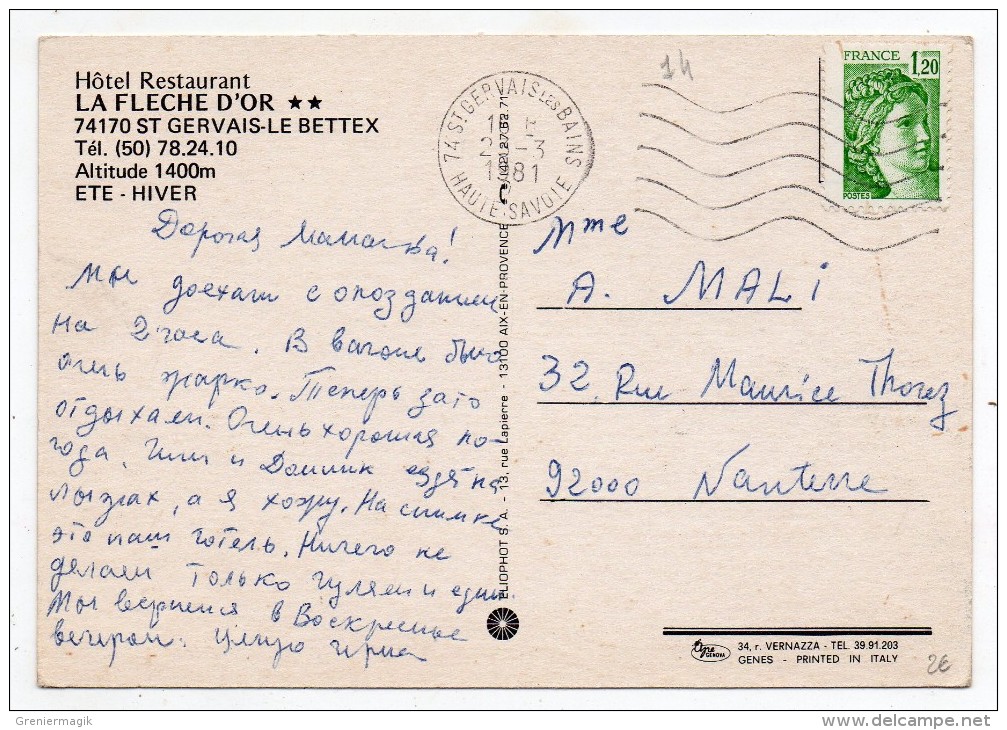 Hôtel Restaurant
LA FLECHE D'OR ★★
74170 ST GERVAIS-LE BETTEX
Tél. (50) 78.24.10
Altitude 1400m
ETE - HIVER
Дорогая Мамочка!
Мы доехали с опозданием
на 2 часа. В вагоне было
очень жарко. Теперь зато
отдыхаем. Очень хорошая по-
года. и Доминик ездят на
лыжах, а я хожу. На снимке
это наш готель. Ничего не
делаем только гуляем и едим.
Мы вернемся в Воскресенье
вечером. Целую Ирина
74 ST GERVAIS LES BAINS
1981
HAUTE-SAVOIE
ELIOPHOT S.A. - 13, rue Lapierre - 13100 AIX-EN-PROVENCE (42) 27.52.71
14
FRANCE
1,20
POSTES
Mme
A. MALI
32, Rue Maurice Thorez
92000 Nanterre
type GENOVA
34, r. VERNAZZA - TEL. 39.91.203
GENES - PRINTED IN ITALY
2€
Greniermagik
www.delcampe.net